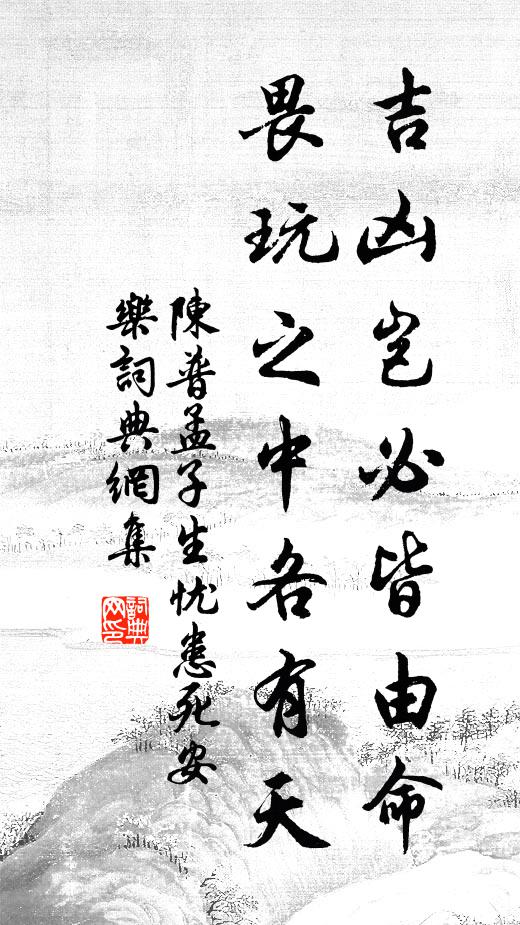 吉凶豈必皆由命
畏玩之中各有天
陳普孟子生忧患死安
樂詞典網集
詞典网印